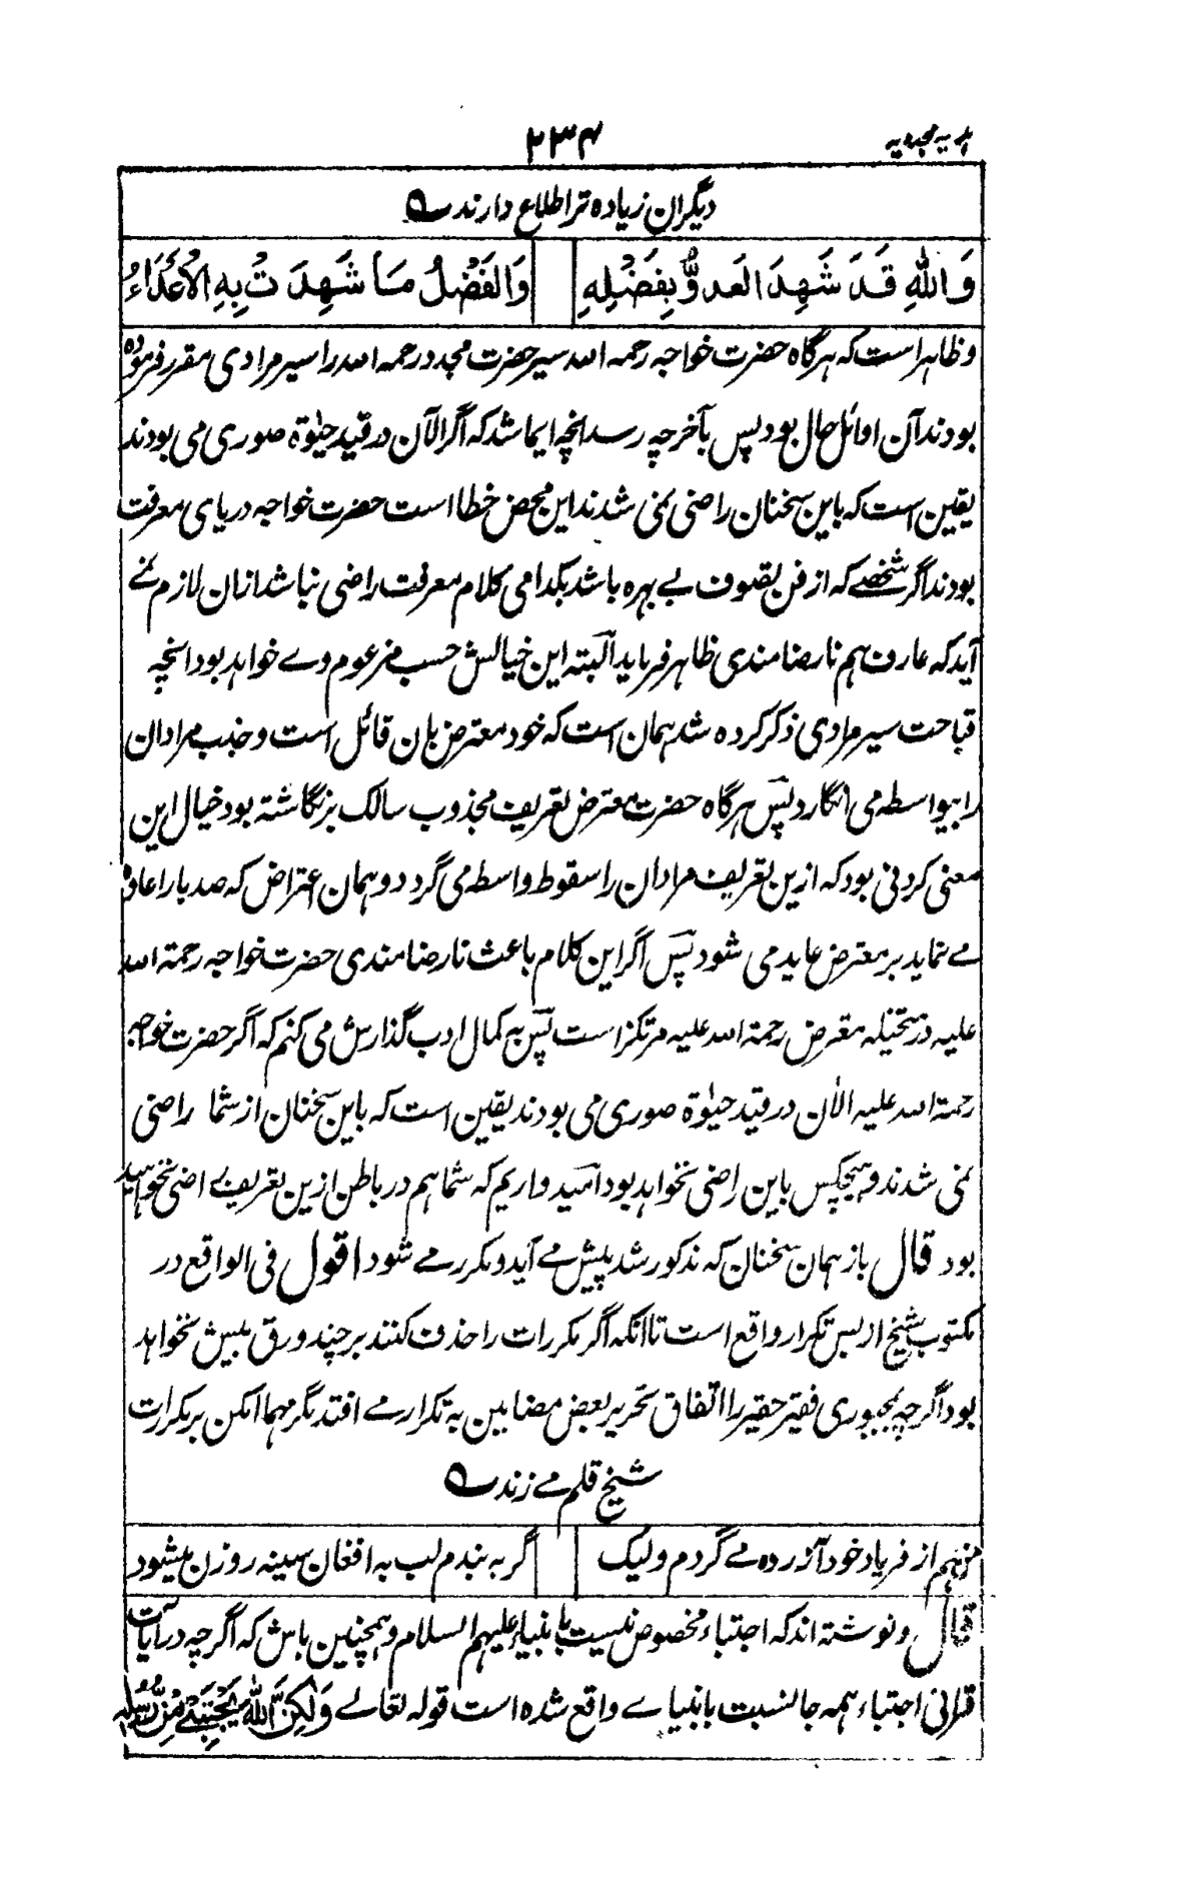 ہدیہ مجددیہ
۲۳۴
دیگران زیادہ تر اطلاع دارند ے
وَاللّٰهِ قَدَ شَهِدَ العَدوُّ بِفَضْلِهِ وَالفَضْلُ مَا شَهِدَتْ بِهِ الاَعْدَاءُ
وظاہر است کہ ہرگاہ حضرت خواجہ رحمہ اللہ سیر حضرت مجدد رحمہ اللہ را سیر مرادی مقرر فرمودہ
بودند آن اوائل حال بود پس بآخر چہ رسد انچہ ایما شد کہ اگر الآن در قید حیٰوۃ صوری می بودند
یقین است کہ باین سخنان راضی نمی شدند این محض خطا است حضرت خواجہ دریای معرفت
بودند اگر شخصے کہ از فن تصوف بے بہرہ باشد بکدامی کلام معرفت راضی نباشد ازان لازم نمے
آید کہ عارف ہم نارضامندی ظاہر فرماید البتہ این خیالش حسب مزعوم وے خواہد بود انچہ
قباحت سیر مرادی ذکر کردہ شد ہمان است کہ خود معترض بان قائل است و جذب مرادان
را بیواسطہ می انگارد پس ہرگاہ حضرت معترض تعریف مجذوب سالک بزنگاشتہ بود خیال این
معنی کردنی بود کہ ازین تعریف مرادان را سقوط واسطہ می گردد و ہمان اعتراض کہ صد بار اعادہ
مے نماید بر معترض عاید می شود پس اگر این کلام باعث نارضامندی حضرت خواجہ رحمۃ اللہ
علیہ در متخیلہ معترض رحمۃ اللہ علیہ مرتکز است پس بہ کمال ادب گذارش می کنم کہ اگر حضرت خواجہ
رحمۃ اللہ علیہ الاٰن در قید حیٰوۃ صوری می بودند یقین است کہ باین سخنان از شما راضی
نمی شدند و ہیچکس باین راضی نخواہد بود امید داریم کہ شما ہم در باطن ازین تعریف راضی نخواہید
بود قال باز ہمان سخنان کہ مذکور شد پیش مے آید و مکرر مے شود اقول فی الواقع در
مکتوب شیخ از بس تکرار واقع است تا آنکہ اگر مکررات را حذف کنند بر چند ورق بیش نخواہد
بود اگرچہ بمجبوری فقیر حقیر را اتفاق تحریر بعض مضامین بہ تکرار مے افتد مگر مہما امکن بر مکررات
شیخ قلم مے زند ے
من ہم از فریاد خود آزردہ مے گردم ولیک گر بہ بندم لب بہ افغان سینہ روزن میشود
قال و نوشتہ اند کہ اجتباء مخصوص نیست بانبیاء علیہم السلام و ہمچنین باش کہ اگرچہ در آیات
قرانی اجتباء ہمہ جا نسبت بانبیاے واقع شدہ است قولہ تعالے وَلٰكِنَّ اللّٰهَ يَجْتَبِيْ مِنْ رُّسُلِهٖ